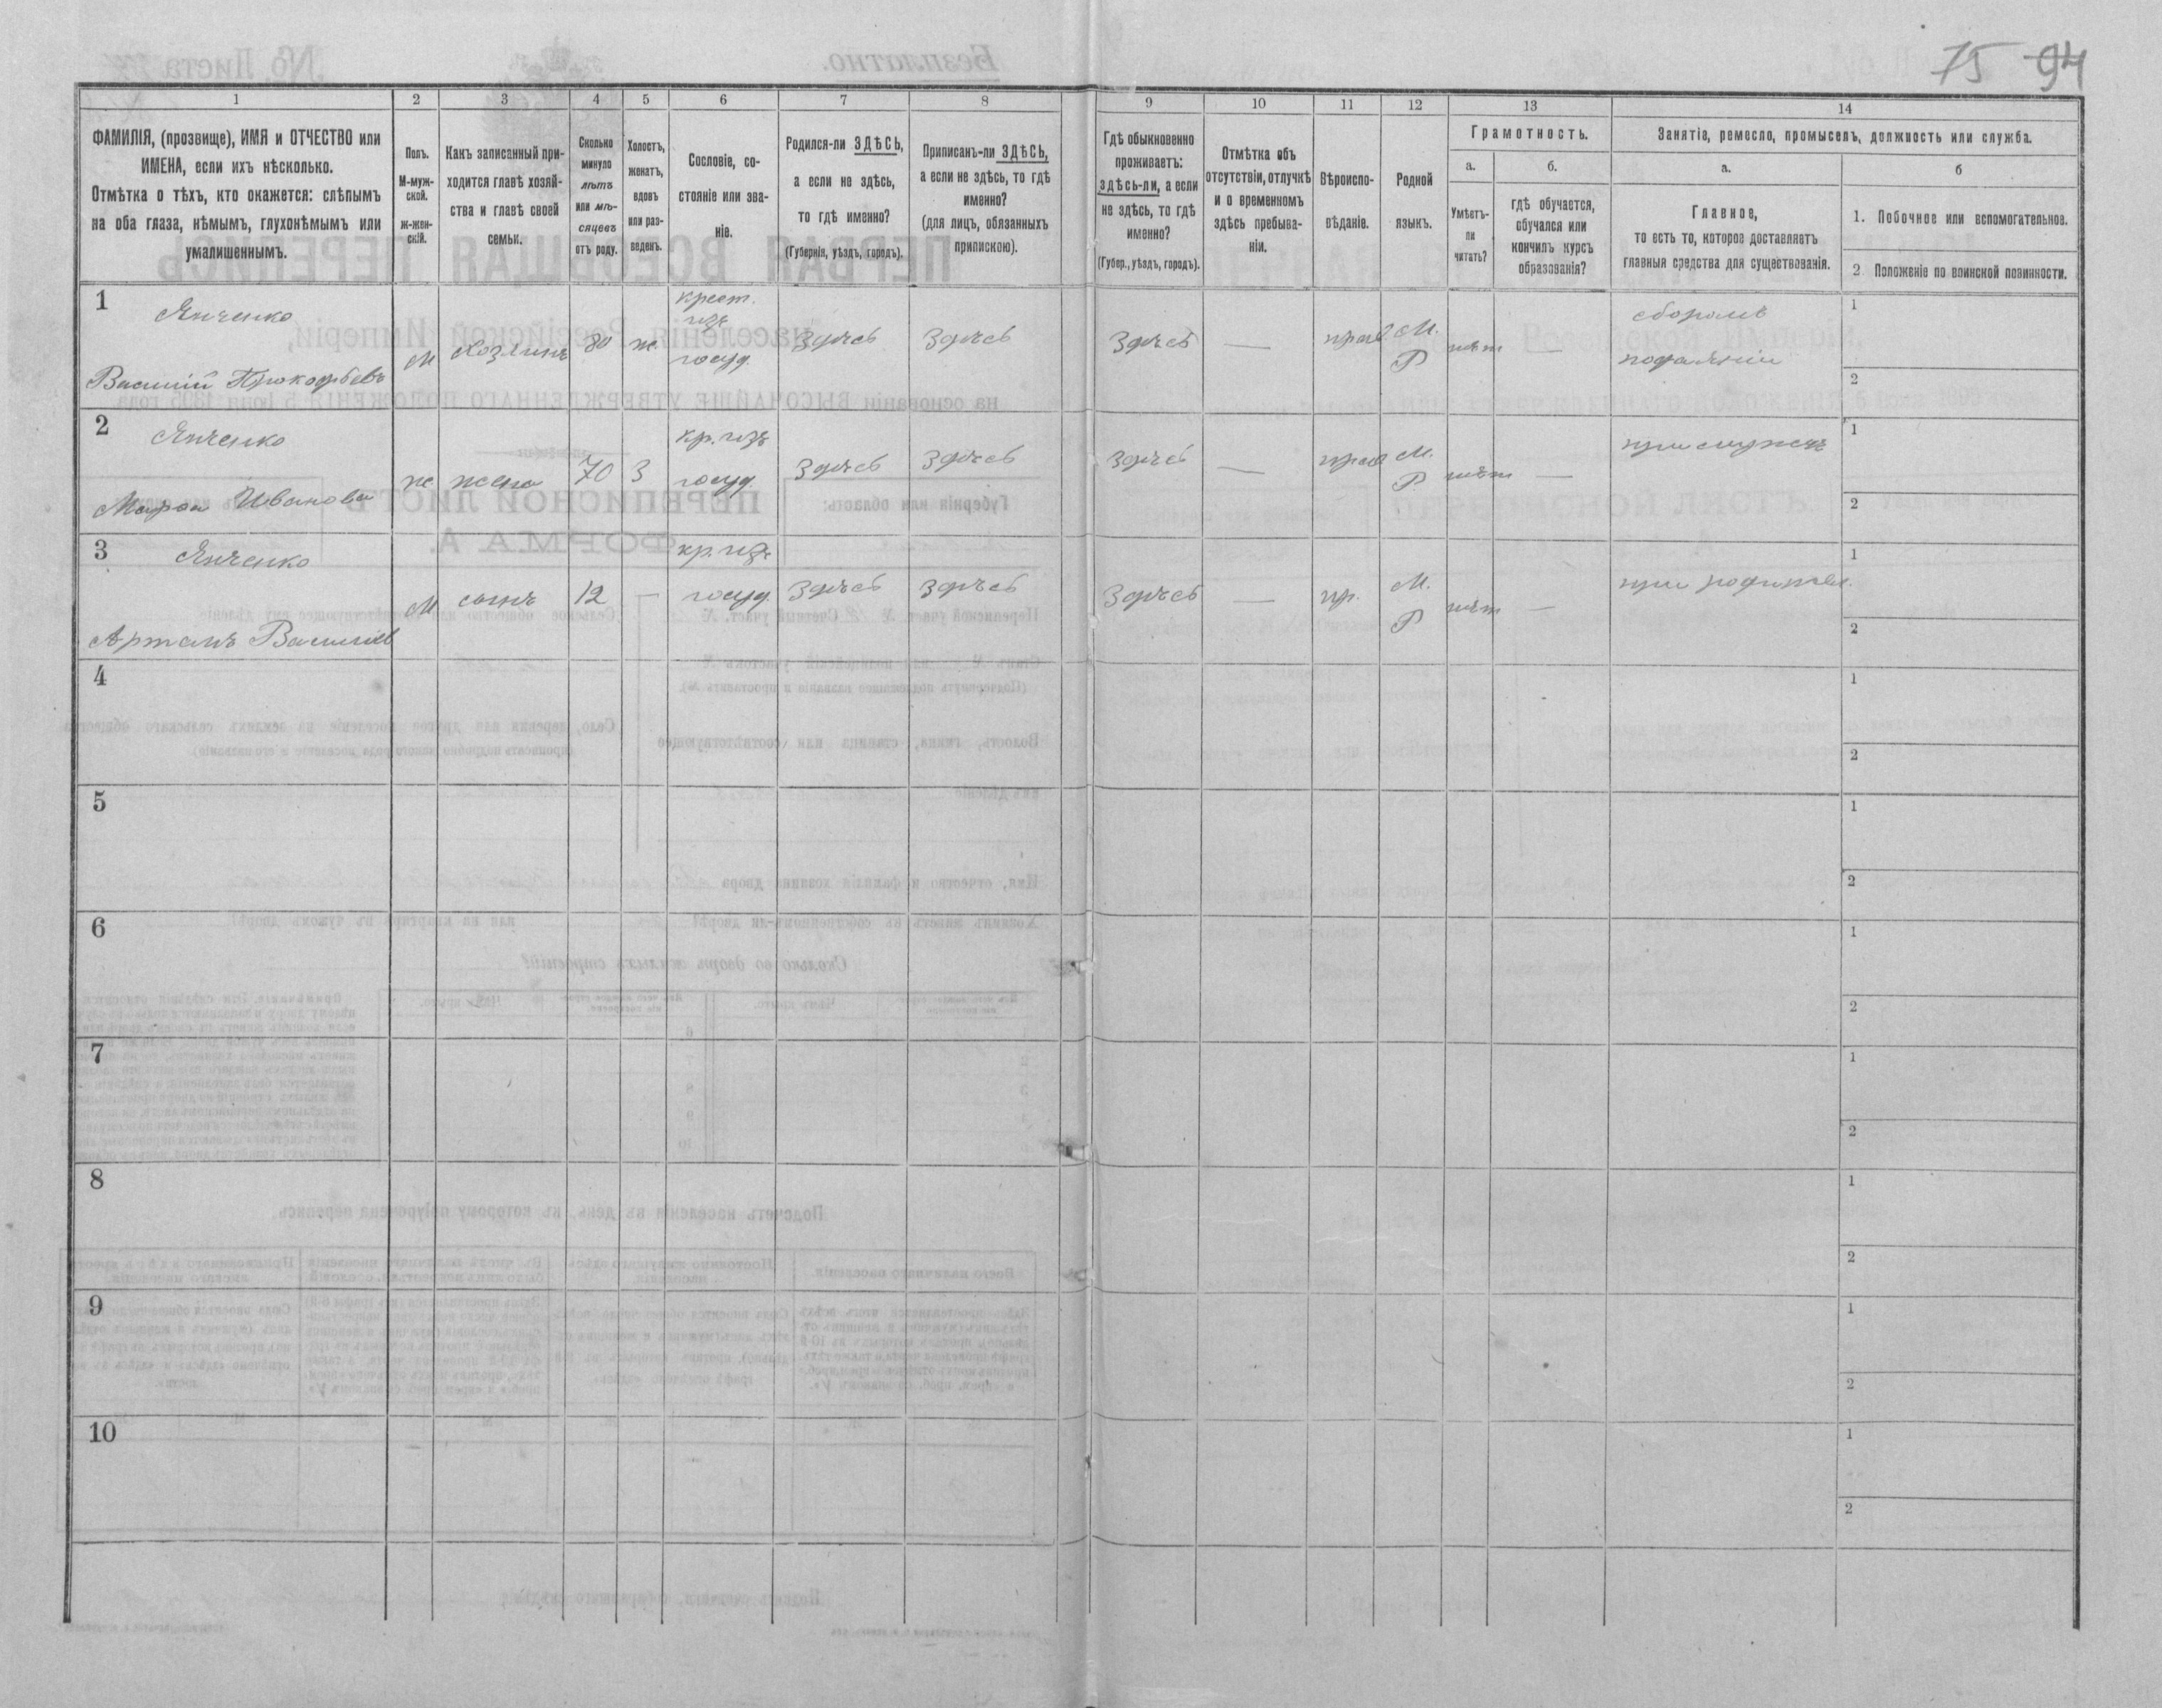 75 94
1 2 3 4 5 6 7 8 9 10 11 12 13 14
ФАМИЛІЯ, (прозвище), ИМЯ и ОТЧЕСТВО или
ИМЕНА, если ихъ нѣсколько.
Отмѣтка о тѣхъ, кто окажется: слѣпымъ
на оба глаза, нѣмымъ, глухонѣмымъ или
умалишеннымъ.
Полъ.
М-муж-
ской.
ж-жен-
скій.
Какъ записанный при-
ходится главѣ хозяй-
ства и главѣ своей
семьи.
Сколько
минуло
лѣтъ
или мѣ-
сяцевъ
отъ роду.
Холостъ,
женатъ,
вдовъ
или раз-
веденъ.
Сословіе, со-
стояніе или зва-
ніе.
Родился-ли ЗДѢСЬ,
а если не здѣсь,
то гдѣ именно?
(Губернія, уѣздъ, городъ).
Приписанъ-ли ЗДѢСЬ,
а если не здѣсь, то гдѣ
именно?
(для лицъ, обязанныхъ
припискою).
Гдѣ обыкновенно
проживаетъ:
здѣсь-ли, а если
не здѣсь, то гдѣ
именно?
(Губер., уѣздъ, городъ).
Отмѣтка объ
отсутствіи, отлучкѣ
и о временномъ
здѣсь пребыва-
ніи.
Вѣроиспо-
вѣданіе.
Родной
языкъ.
Грамотность.
а.
Умѣетъ-
ли
читать?
б.
гдѣ обучается,
обучался или
кончилъ курсъ
образованія?
Занятіе, ремесло, промыселъ, должность или служба.
а.
Главное,
то есть то, которое доставляетъ
главныя средства для существованія.
б
1. Побочное или вспомогательное.
2. Положеніе по воинской повинности.
1 Янченко
Василій Прокофьевъ
М хозяинъ 80 ж.
крест.
изъ
госуд.
Здѣсь Здѣсь Здѣсь — прав М.
Р нѣт —
сборомъ
подаянія
1
2
2 Янченко
Мароа Иванова
ж жена 70 З
кр. изъ
госуд.
Здѣсь Здѣсь Здѣсь — прав М.
Р нѣт —
при мужѣ
1
2
3 Янченко
Артемъ Васильев
М сынъ 12 —
кр. изъ
госуд.
Здѣсь Здѣсь Здѣсь — пр. М.
Р нѣт —
при родител.
1
2
4 1
2
5 1
2
6 1
2
7 1
2
8 1
2
9 1
2
10 1
2